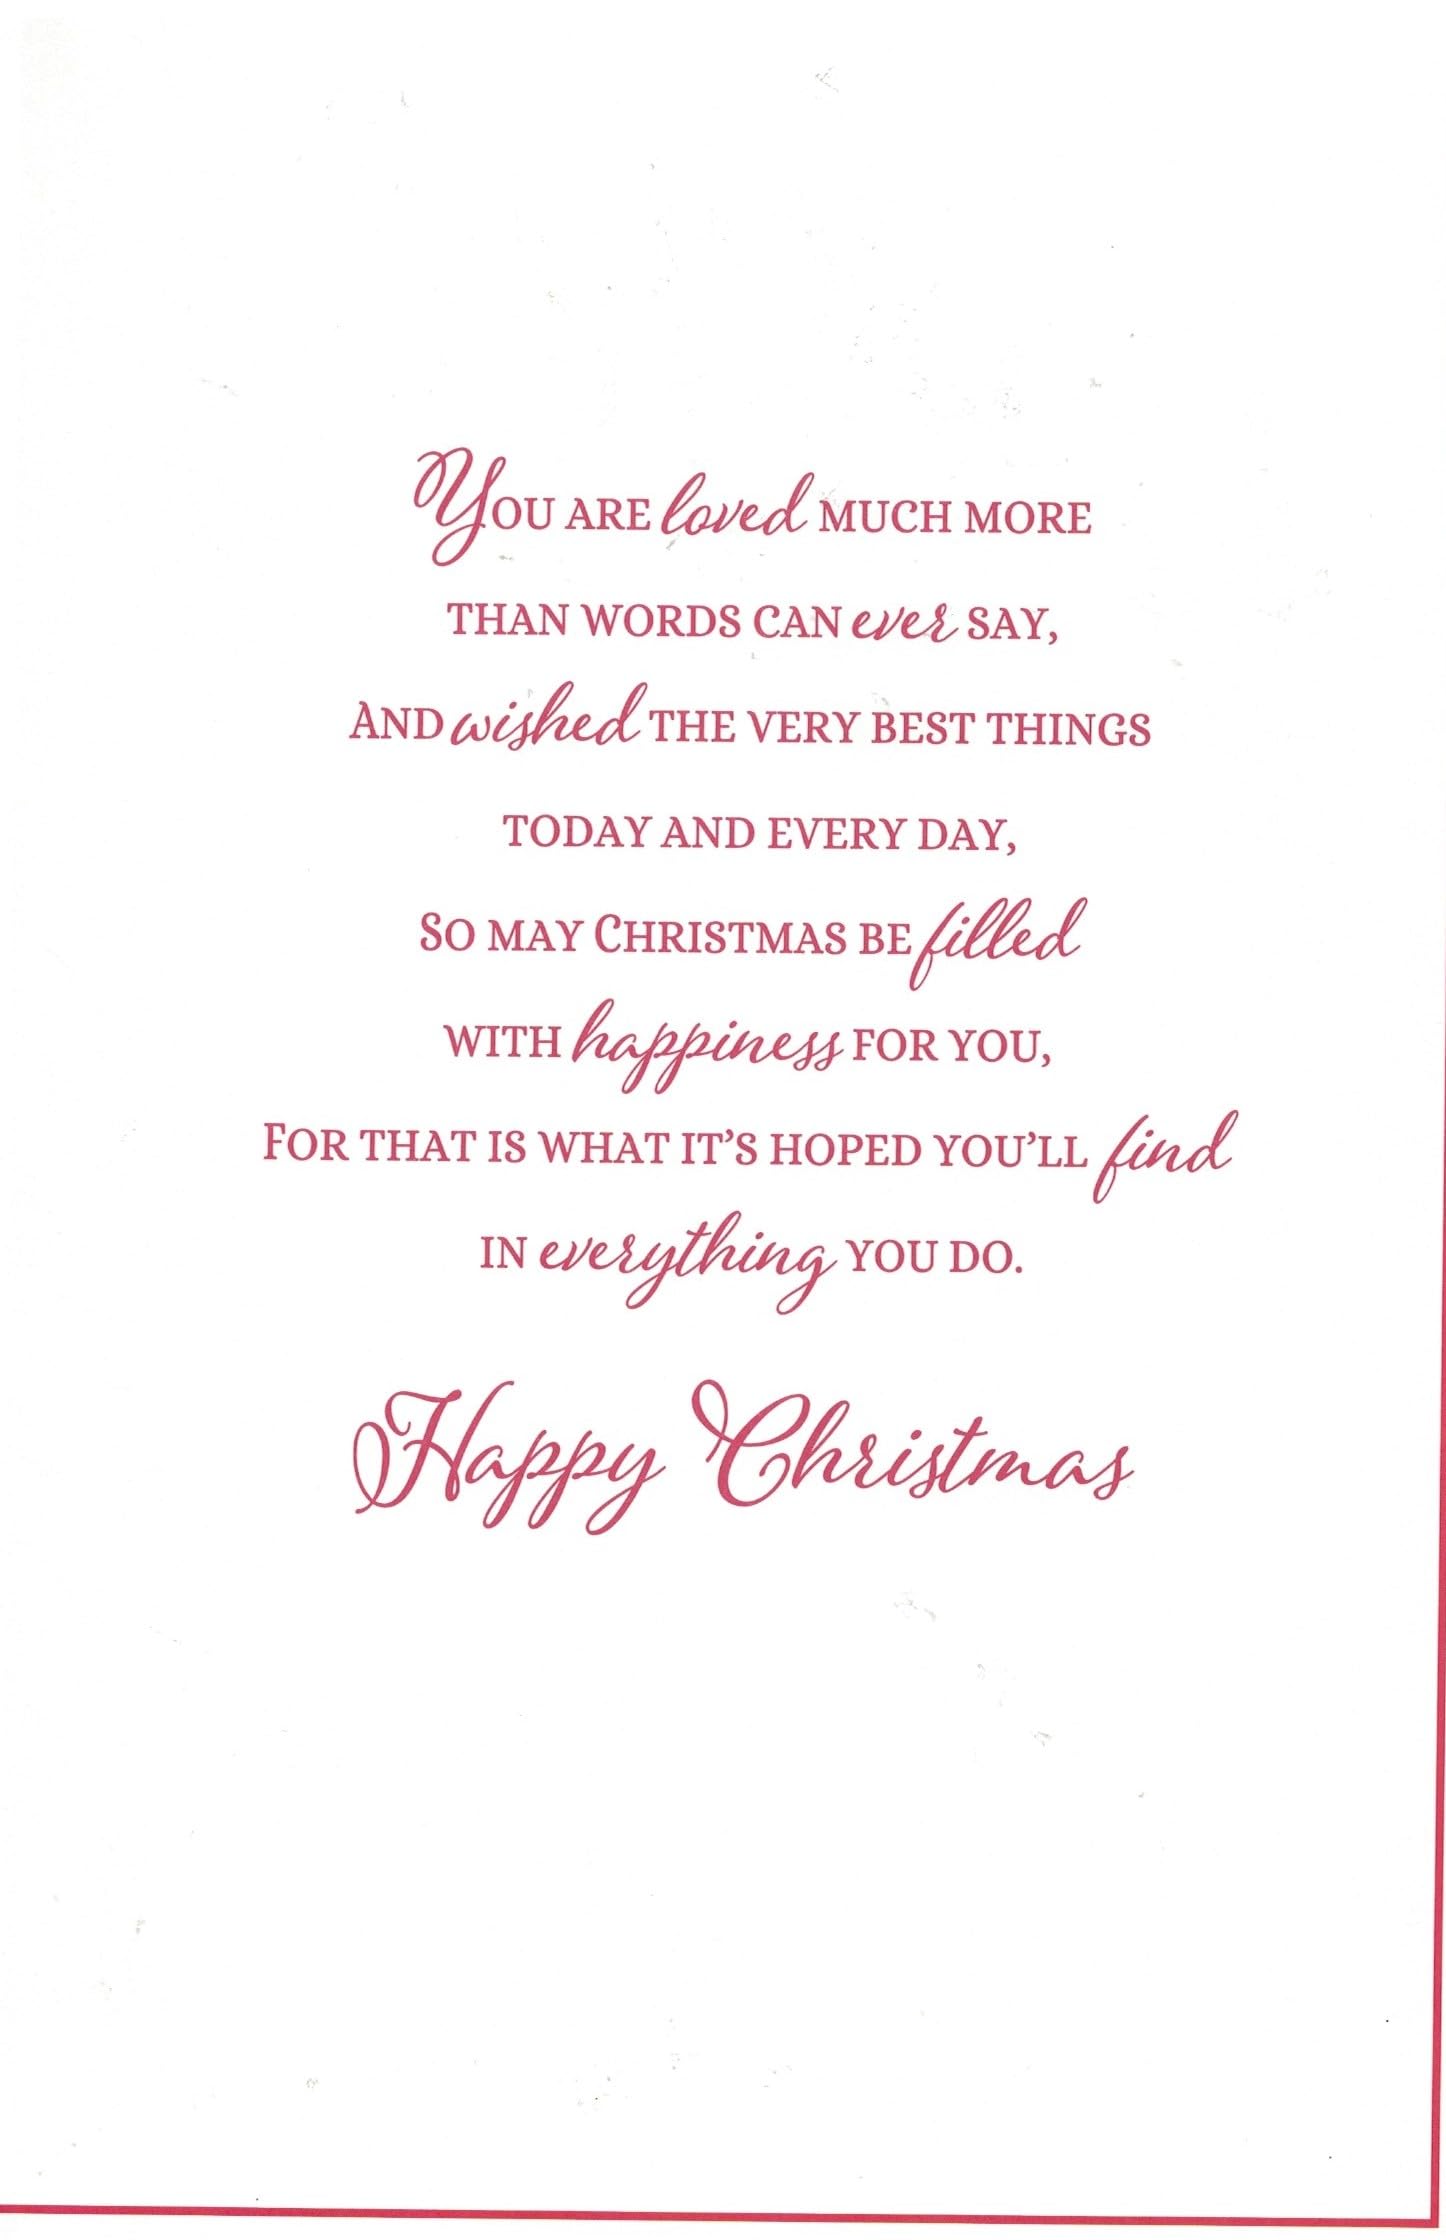 You are loved much more
than words can ever say,
And wished the very best things
today and every day,
So may Christmas be filled
with happiness for you,
For that is what it's hoped you'll find
in everything you do.
Happy Christmas